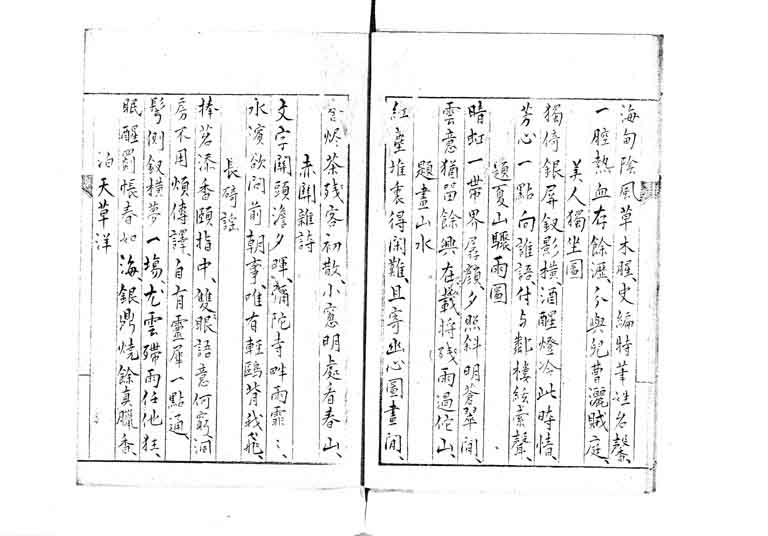 海甸陰風草木腥、史編特筆姓名馨、
一腔熱血存餘瀝、分與兒曹灑賊庭、
美人獨坐圖
獨倚銀屏釵影橫、酒醒燈冷此時情、
芳心一點向誰語、付与鄰樓絃索聲、
題夏山驟雨圖
暗虹一帶界孱顏、夕照斜明蒼翠間、
雲意猶留餘興在、載將殘雨過佗山、
題畫山水
紅塵堆裏得閑難、且寄幽心圖畫間、
燼茶殘客初散、小窓明處看春山、
赤關雜詩
文字關頭澹夕暉、彌陀寺畔雨霏〻、
水濱欲問前朝事、唯有輕鷗背我飛、
長碕謠
捧茗添香頤指中、雙眼語意何窮、洞
房不用煩傳譯、自有靈犀一點通、
髩側釵橫夢一場、尤雲殢雨任他狂、
眠醒罽帳春如海、銀鼎燒餘真臘香、
泊天草洋